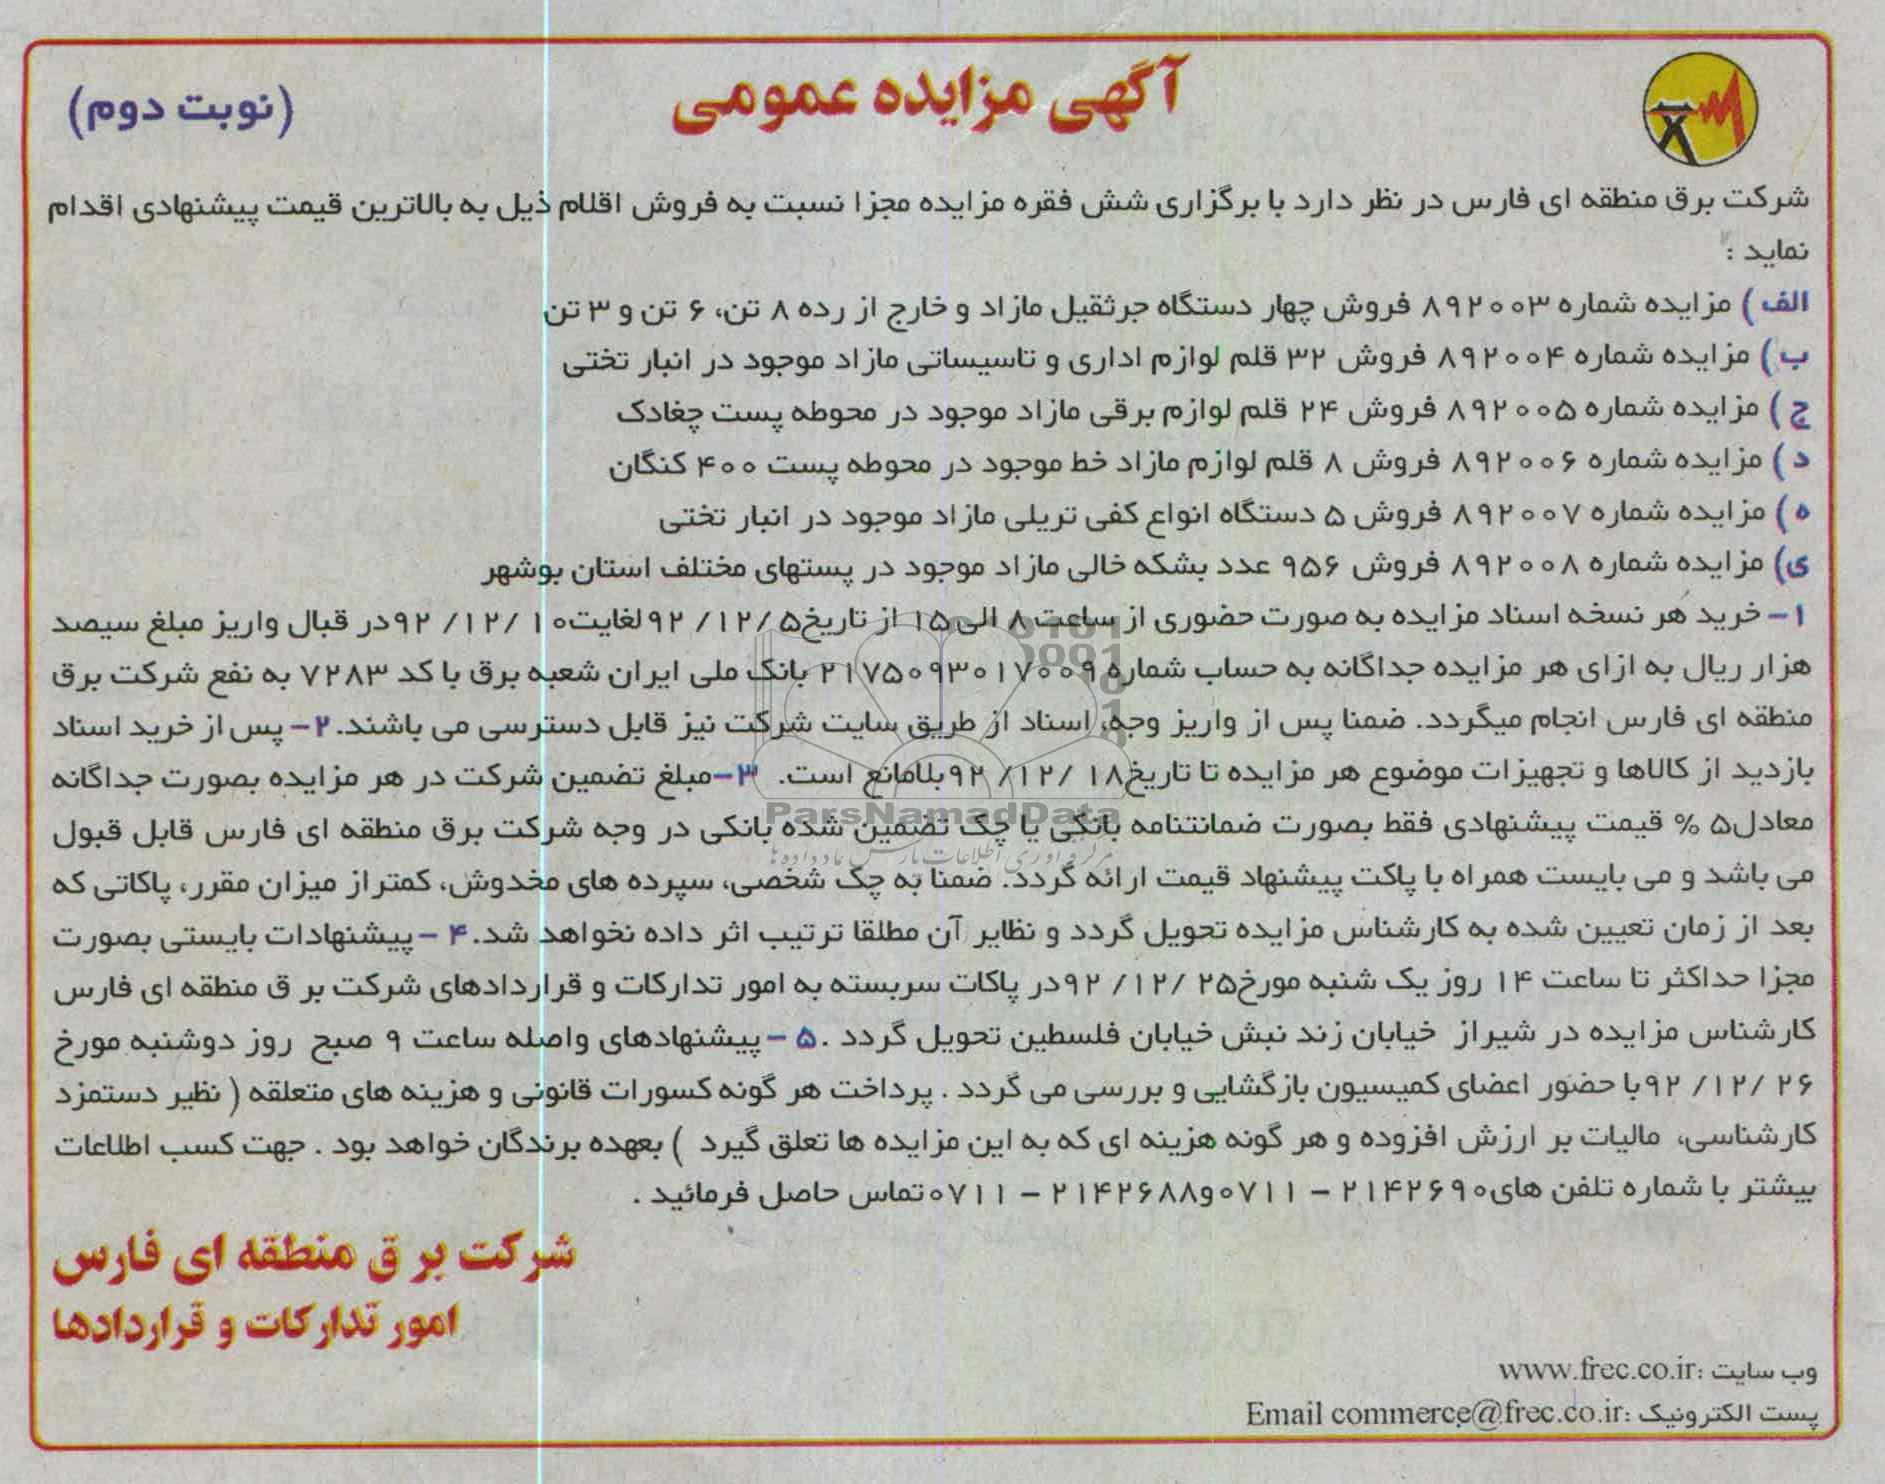 آگهی مزایده عمومی
(نوبت دوم)
شرکت برق منطقه ای فارس در نظر دارد با برگزاری شش فقره مزایده مجزا نسبت به فروش اقلام ذیل به بالاترین قیمت پیشنهادی اقدام
نماید :
الف) مزایده شماره ۸۹۲۰۰۳ فروش چهار دستگاه جرثقیل مازاد و خارج از رده ۸ تن، ۶ تن و ۳ تن
ب) مزایده شماره ۸۹۲۰۰۴ فروش ۳۲ قلم لوازم اداری و تاسیساتی مازاد موجود در انبار تختی
ج) مزایده شماره ۸۹۲۰۰۵ فروش ۲۴ قلم لوازم برقی مازاد موجود در محوطه پست چغادک
د) مزایده شماره ۸۹۲۰۰۶ فروش ۸ قلم لوازم مازاد خط موجود در محوطه پست ۴۰۰ کنگان
ه) مزایده شماره ۸۹۲۰۰۷ فروش ۵ دستگاه انواع کفی تریلی مازاد موجود در انبار تختی
ی) مزایده شماره ۸۹۲۰۰۸ فروش ۹۵۶ عدد بشکه خالی مازاد موجود در پستهای مختلف استان بوشهر
۱- خرید هر نسخه اسناد مزایده به صورت حضوری از ساعت ۸ الی ۱۵ از تاریخ ۹۲/۱۲/۵ لغایت ۹۲/۱۲/۱۰ در قبال واریز مبلغ سیصد
هزار ریال به ازای هر مزایده جداگانه به حساب شماره ۲۱۷۵۰۹۳۰۱۷۰۰۹ بانک ملی ایران شعبه برق با کد ۷۲۸۳ به نفع شرکت برق
منطقه ای فارس انجام میگردد. ضمنا پس از واریز وجه، اسناد از طریق سایت شرکت نیز قابل دسترسی می باشند. ۲- پس از خرید اسناد
بازدید از کالاها و تجهیزات موضوع هر مزایده تا تاریخ ۹۲/۱۲/۱۸ بلامانع است. ۳- مبلغ تضمین شرکت در هر مزایده بصورت جداگانه
معادل ۵ % قیمت پیشنهادی فقط بصورت ضمانتنامه بانکی یا چک تضمین شده بانکی در وجه شرکت برق منطقه ای فارس قابل قبول
می باشد و می بایست همراه با پاکت پیشنهاد قیمت ارائه گردد. ضمنا به چک شخصی، سپرده های مخدوش، کمتر از میزان مقرر، پاکاتی که
بعد از زمان تعیین شده به کارشناس مزایده تحویل گردد و نظایر آن مطلقا ترتیب اثر داده نخواهد شد. ۴- پیشنهادات بایستی بصورت
مجزا حداکثر تا ساعت ۱۴ روز یک شنبه مورخ ۹۲/۱۲/۲۵ در پاکات سربسته به امور تدارکات و قراردادهای شرکت بر ق منطقه ای فارس
کارشناس مزایده در شیراز خیابان زند نبش خیابان فلسطین تحویل گردد . ۵- پیشنهادهای واصله ساعت ۹ صبح روز دوشنبه مورخ
۹۲/۱۲/۲۶ با حضور اعضای کمیسیون بازگشایی و بررسی می گردد . پرداخت هر گونه کسورات قانونی و هزینه های متعلقه ( نظیر دستمزد
کارشناسی، مالیات بر ارزش افزوده و هر گونه هزینه ای که به این مزایده ها تعلق گیرد ) بعهده برندگان خواهد بود . جهت کسب اطلاعات
بیشتر با شماره تلفن های ۲۱۴۲۶۹۰ - ۰۷۱۱ و ۲۱۴۲۶۸۸ - ۰۷۱۱ تماس حاصل فرمائید .
شرکت بر ق منطقه ای فارس
امور تدارکات و قراردادها
وب سایت :www.frec.co.ir
پست الکترونیک :Email commerce@frec.co.ir
ParsNamadData
مرکز فرآوری اطلاعات پارس نماد داده ها